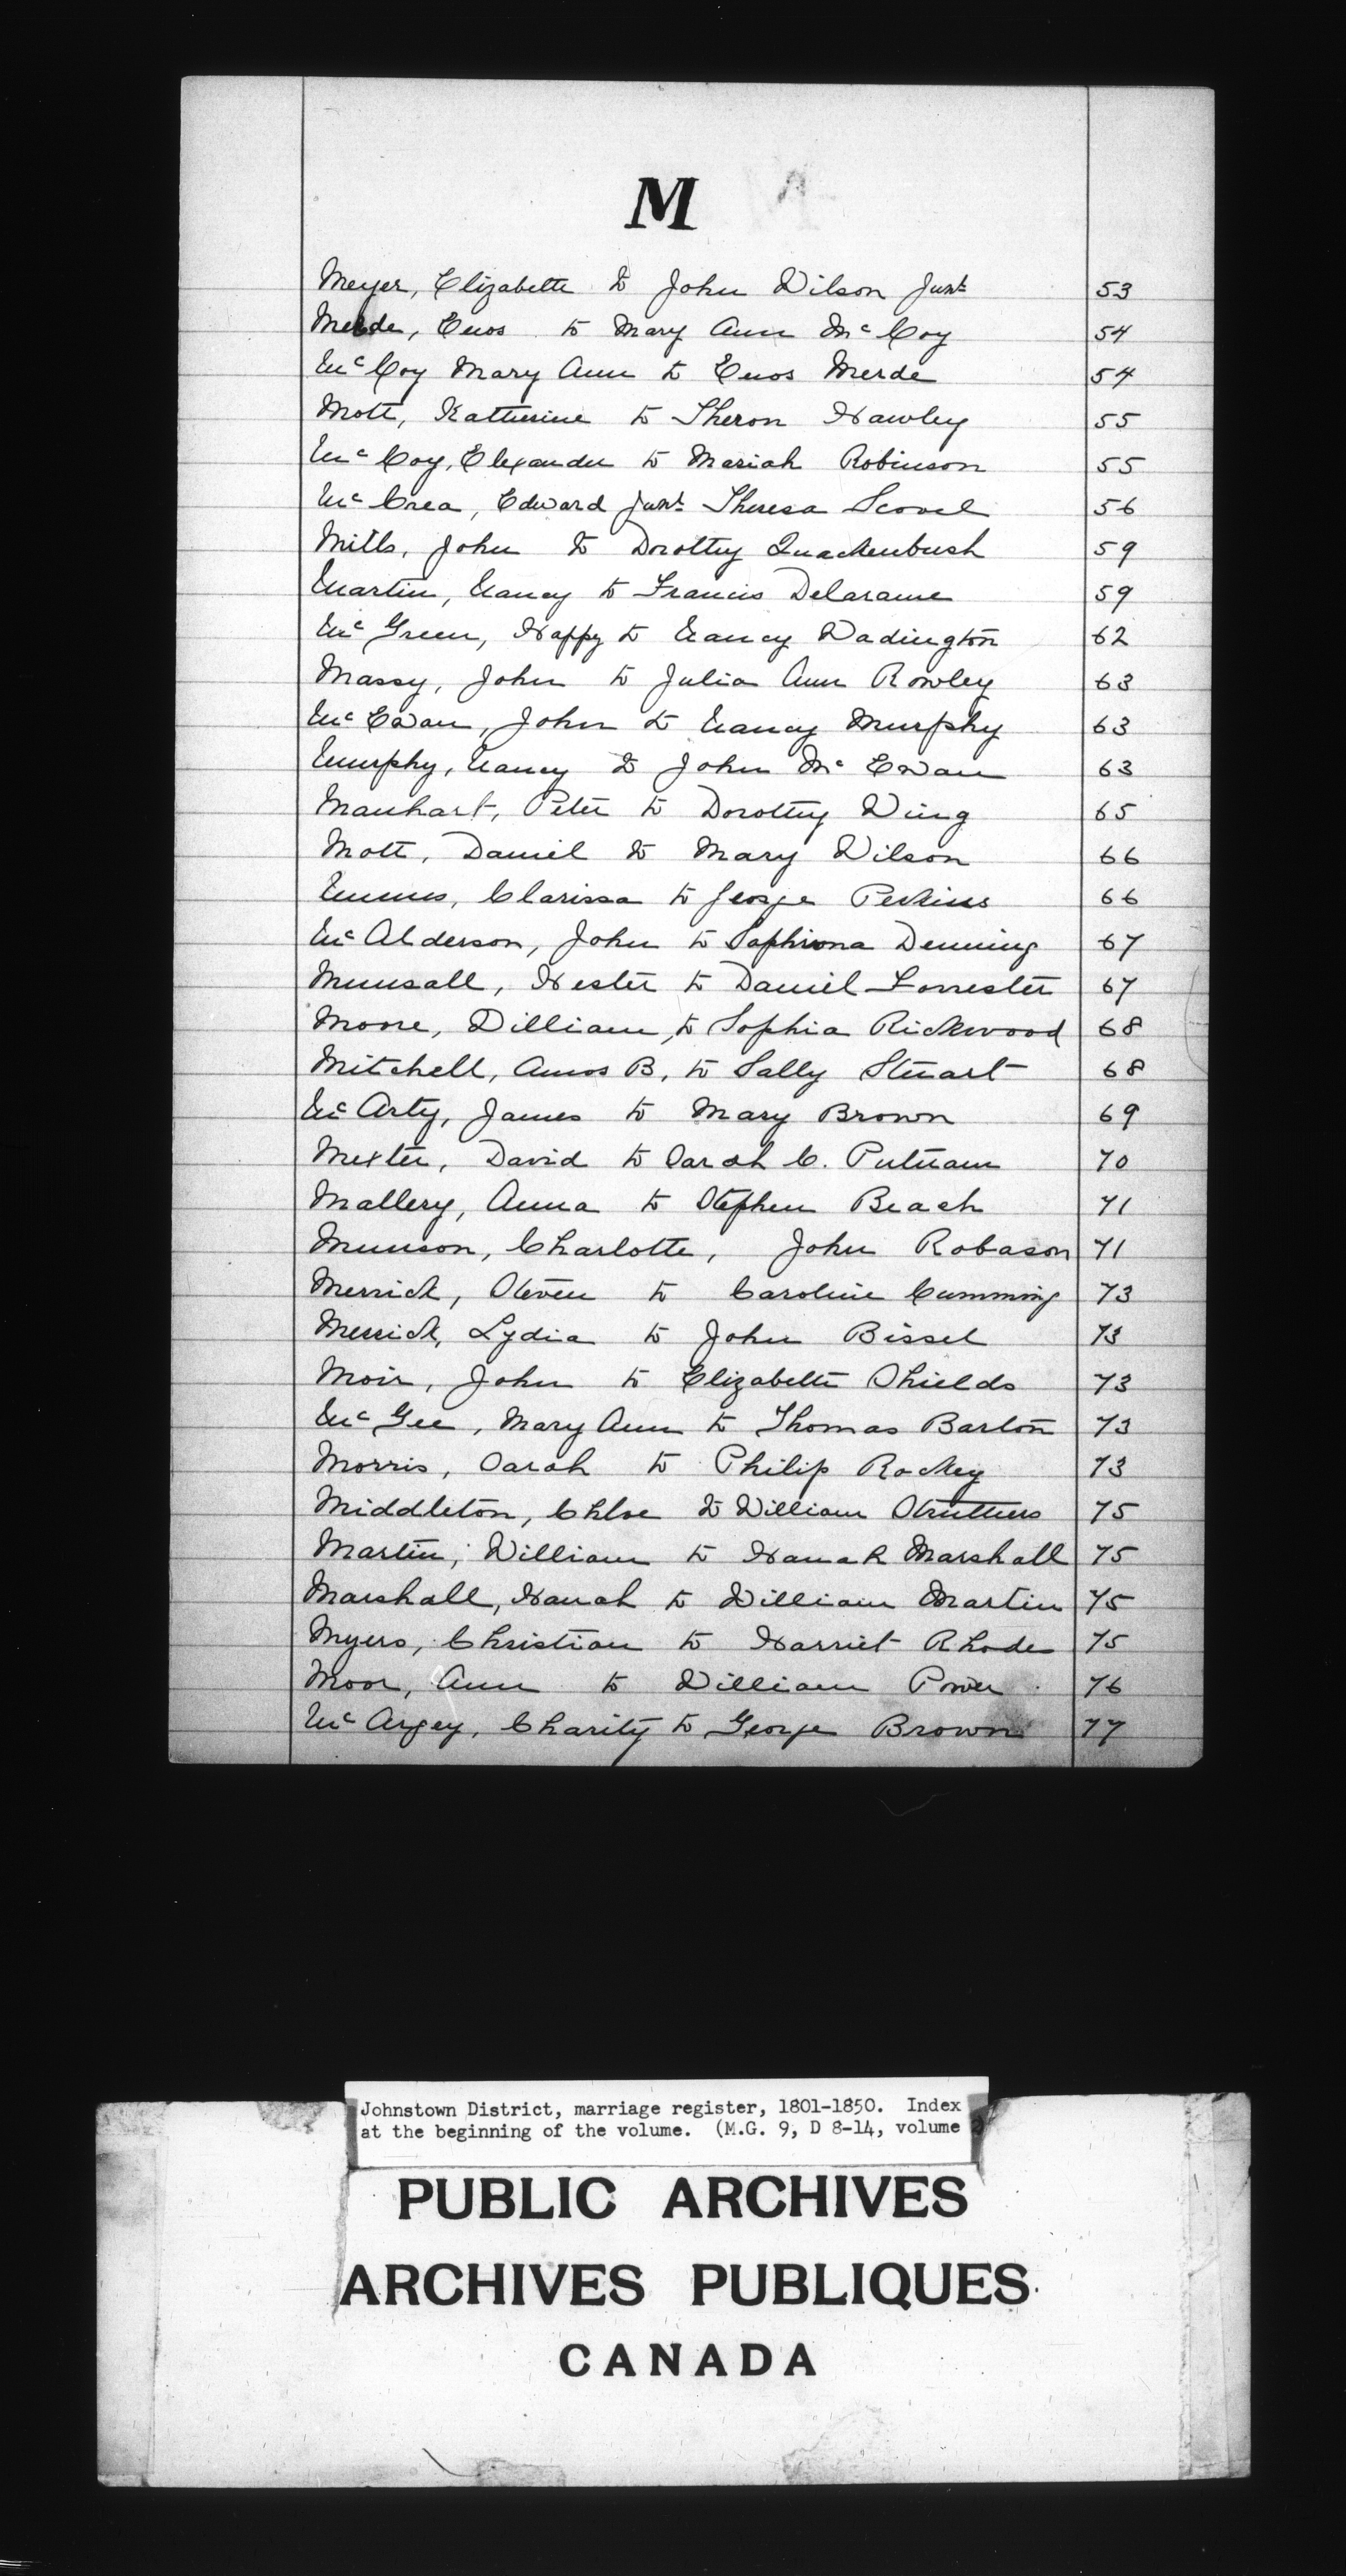 M
Meyer, Elizabeth to John Wilson Junr 53
Merde, Enos to Mary Ann McCoy 54
McCoy Mary Ann to Enos Merde 54
Mott, Katherine to Theron Hawley 55
McCoy, Elexander to Mariah Robinson 55
McCrea, Edward Junr. Theresa Scovel 56
Mills, John to Dorothy Quackenbush 59
Martin, Nancy to Francis Delarame 59
McGreen, Happy to Nancy Wadington 62
Massy, John to Julia Ann Rowley 63
McEwan, John to Nancy Murphy 63
Murphy, Nancy to John McEwan 63
Manhart, Peter to Dorothy Wing 65
Mott, Daniel to Mary Wilson 66
Clarissa to George Perkins 66
McAlderson, John to Sophrona Denning 67
Munsall, Hester to Daniel Forrester 67
Moore, William, to Sophia Rickwood 68
Mitchell, Amos B, to Sally Stuart 68
McArty, James to Mary Brown 69
Mexter, David to Sarah C. Putnam 70
Mallery, Anna to Stephen Beach 71
Munson, Charlotte, John Robason 71
Merrick, Steven to Caroline Cumming 73
Merrick, Lydia to John Bissel 73
Moir, John to Elizabeth Shields 73
McGee, Mary Ann to Thomas Barton 73
Morris, Sarah to Philip Rockey 73
Middleton, Chloe to William Struthers 75
Martin, William to Hanah Marshall 75
Marshall, Hanah to William Martin 75
Myers, Christian to Harriet Rhode 75
Moor, Ann to William Power 76
McArgey, Charity to George Brown 77
Johnstown District, marriage register, 1801-1850. Index
at the beginning of the volume. (M.G. 9, D 8-14, volume
PUBLIC ARCHIVES
ARCHIVES PUBLIQUES
CANADA